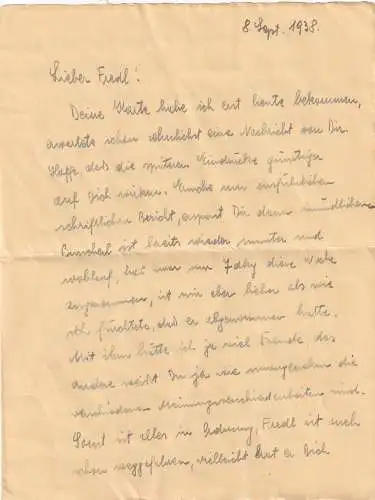 8. Sept. 1938.
Lieber Fredl!
Deine Karte habe ich erst heute bekommen,
erwartete schon sehnlichst eine Nachricht von Dir
Hoffe, daß die späteren Eindrücke günstiger
auf Dich wirken. Mache nur ausführlichen
schriftlichen Bericht, erspart Dir dann mündlichen
ist bereits wieder munter und
wohlauf, hat nur um 7 dkg diese Woche
zugenommen, ist mir aber lieber als wie
ich fürchtete, daß er abgenommen hätte.
Mit ihm hätte ich ja viel Freude das
andere weißt Du ja wie unangenehm die
verschiedenen Meinungsverschiedenheiten sind.
Sonst ist alles in Ordnung, Fredl ist auch
schon weggefahren, vielleicht hat er Dich